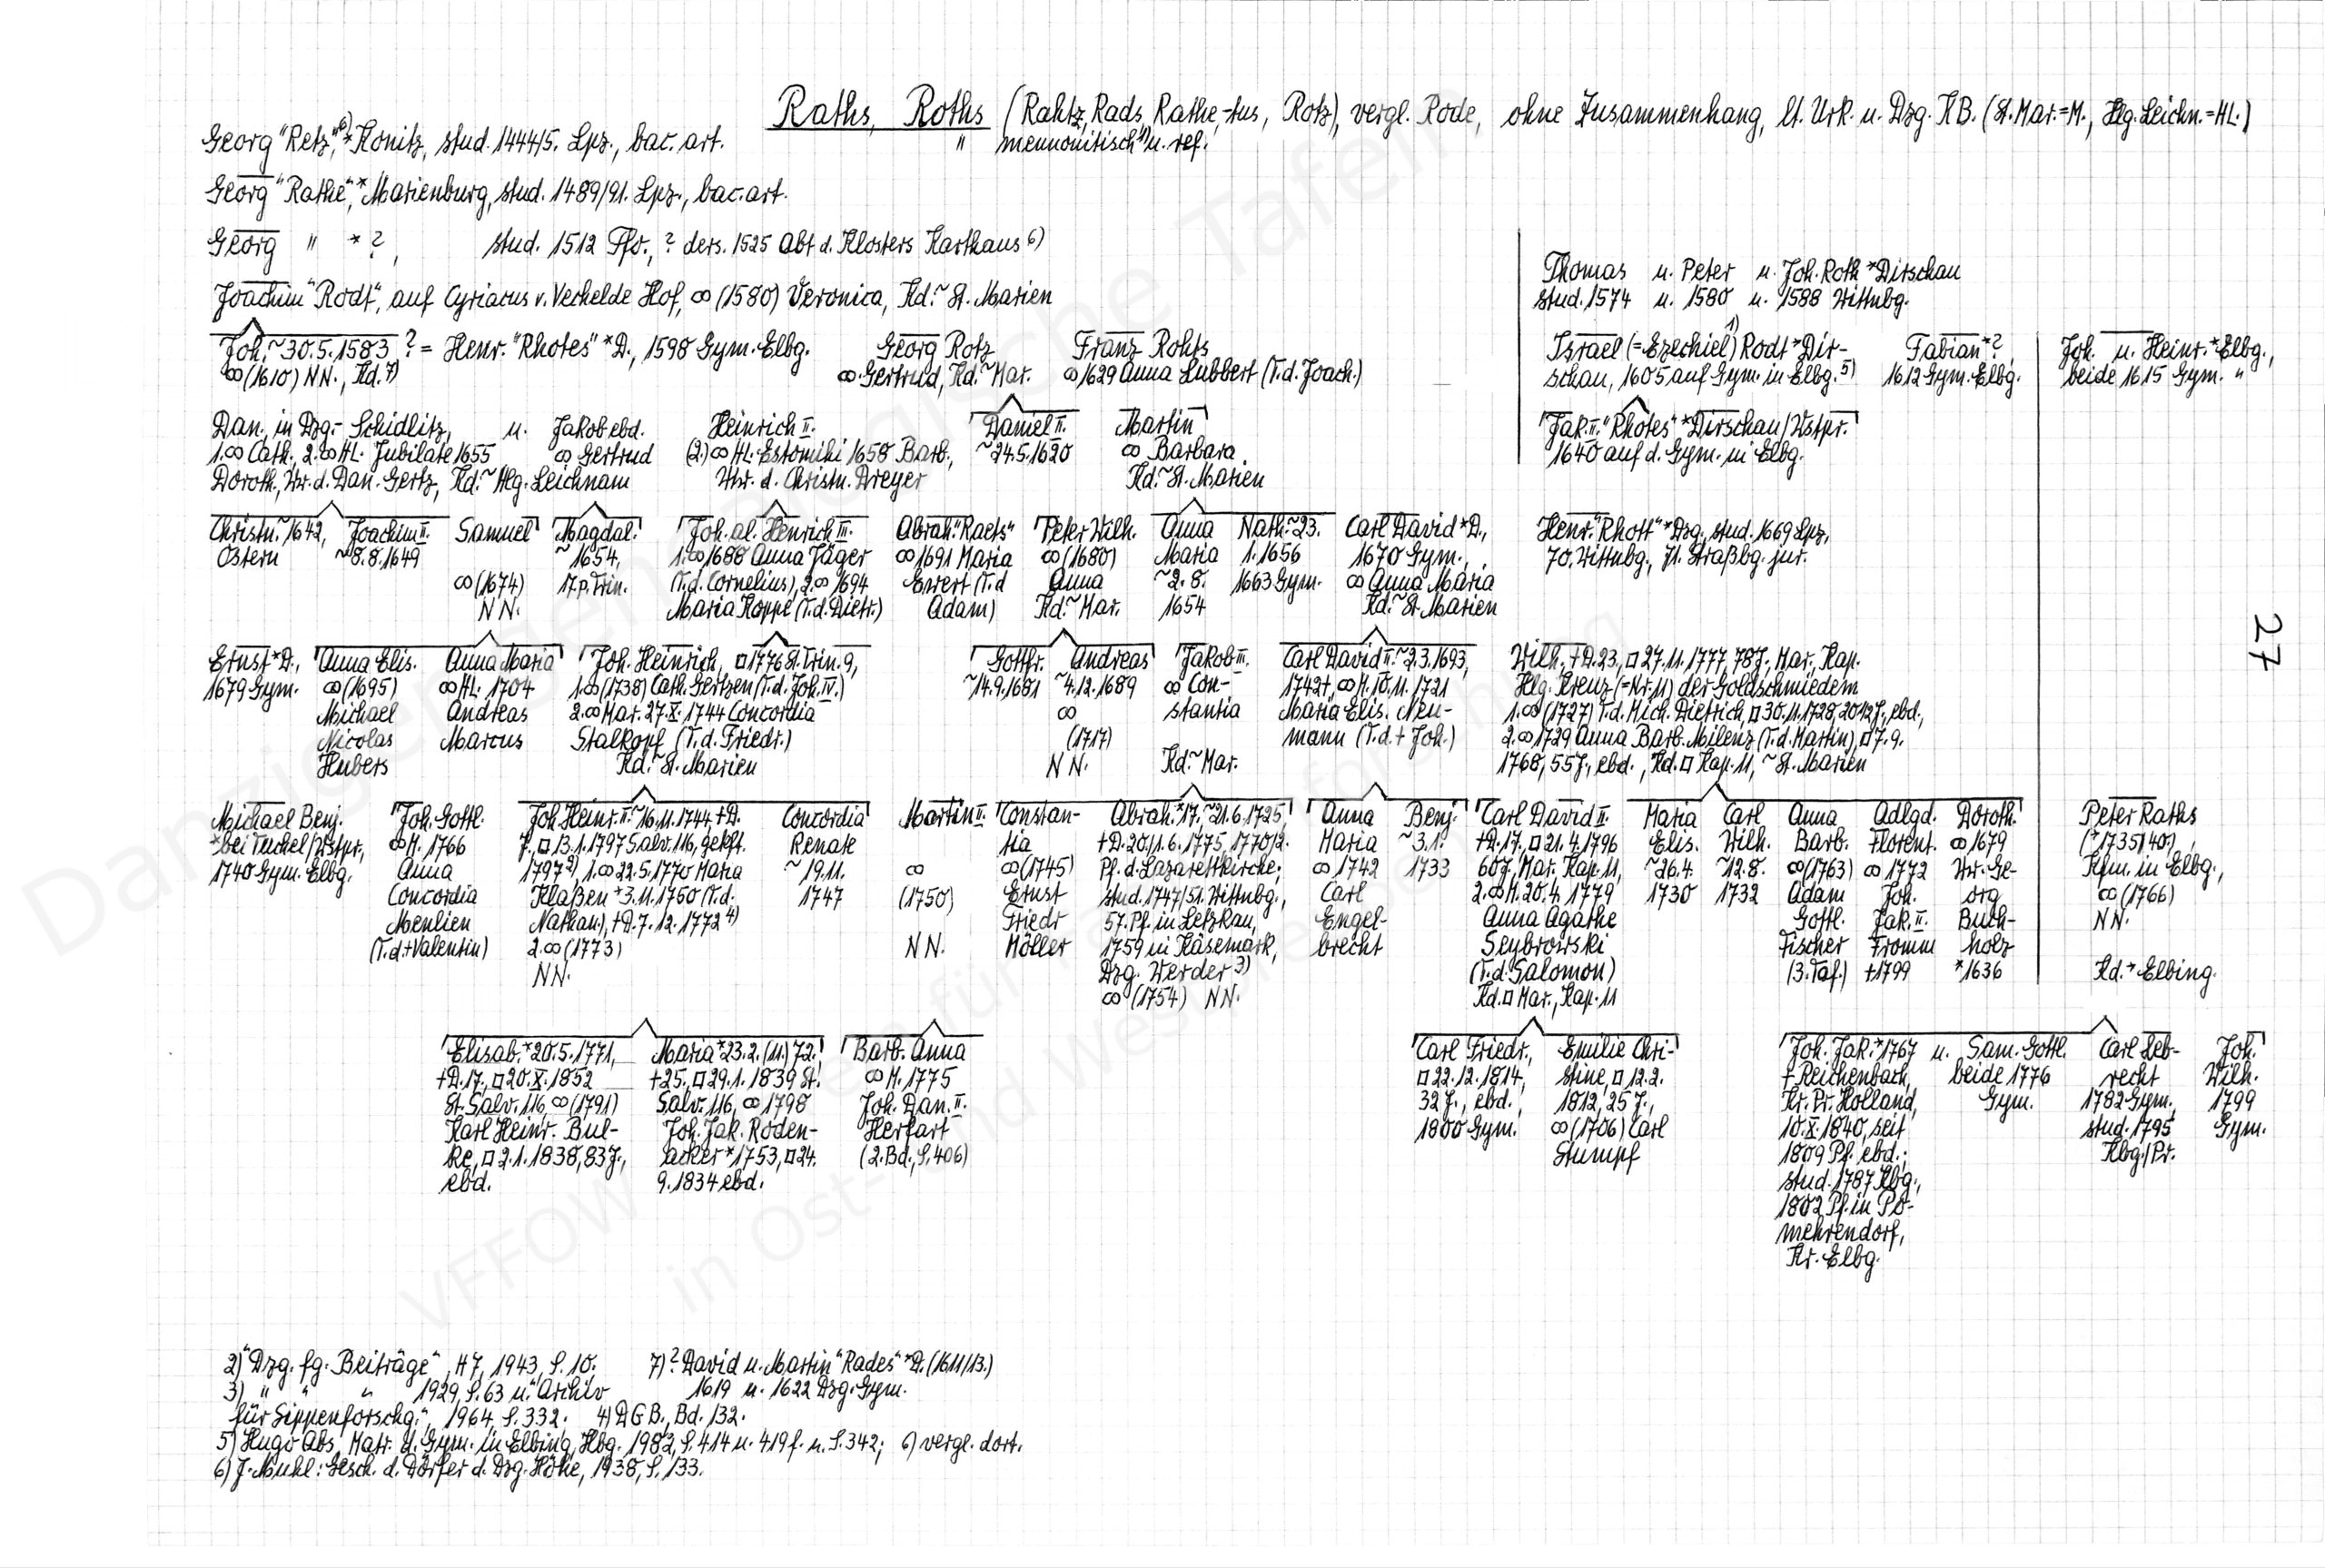 Raths, Roths (Rahtz, Rads, Rathe, =tus, Rotz), vergl. Rode, ohne Zusammenhang, lt. Urk. u. Dzg. KB. (St. Mar.=M., Hlg. Leichn.=HL.)
" mennonitisch u. ref.
Georg "Retz", 6) *Konitz, stud. 1444/5. Lpz., bac. art.
Georg "Rathe", *Marienburg, stud. 1489/91. Lpz., bac. art.
Georg " * ?, stud. 1512 Ffo., ? ders. 1525 Abt d. Klosters Karthaus 6)
Joachim "Rodt", auf Cyriacus v. Vechelde Hof, ∞ (1580) Veronica, Kd. ~ St. Marien
Thomas u. Peter u. Joh. Roth *Dirschau
stud. 1574 u. 1580 u. 1588 Wittnbg.
Joh. ~ 30.5.1583, ? = Henr. "Rhotes" *D., 1598 Gym. Elbg.
∞ (1610) NN., Kd. 7)
Georg Rotz
∞ Gertrud, Kd. ~ Mar.
Franz Rohts
∞ 1629 Anna Lubbert (T. d. Joach.)
Israel (= Ezechiel) 1) Rodt *Dir-
schau, 1605 auf Gym. in Elbg. 5)
Fabian *?
1612 Gym. Elbg.
Joh. u. Heinr. *Elbg.,
beide 1615 Gym. "
Dan. in Dzg.- Schidlitz,
1. ∞ Cath., 2. ∞ HL. Jubilate 1655
Doroth., Ww. d. Dan. Gertz, Kd. ~ Hlg. Leichnam
u. Jakob ebd.
∞ Gertrud
Heinrich II.
(2.) ∞ HL. Estomihi 1658 Barb.,
Ww. d. Christn. Dreyer
Daniel II.
~ 24.5.1620
Martin
∞ Barbara
Kd. ~ St. Marien
Jak. II. "Rhotes" *Dirschau/Wstpr.
1640 auf d. Gym. in Elbg.
Christn. ~ 1642,
Ostern
Joachim II.
~ 8.8.1649
Samuel
∞ (1674)
NN.
Magdal.
~ 1654,
17. p. Trin.
Joh. al. Henrich III.
1. ∞ 1688 Anna Jäger
(T. d. Cornelius), 2. ∞ 1694
Maria Koppe (T. d. Dietr.)
Abrah. "Raets"
∞ 1691 Maria
Ewert (T. d
Adam)
Peter Wilh.
∞ (1680)
Anna
Kd. ~ Mar.
Anna
Maria
~ 2.8.
1654
Nath. ~ 23.
1. 1656
1663 Gym.
Carl David *D.,
1670 Gym.,
∞ Anna Maria
Kd. ~ St. Marien
Henr. "Rhott" *Dzg., stud. 1669 Lpz,
70. Wittnbg., 71. Straßbg. jur.
Ernst *D.,
1679 Gym.
Anna Elis.
∞ (1695)
Michael
Nicolas
Hubers
Anna Maria
∞ HL. 1704
Andreas
Marcus
Joh. Heinrich, □ 1776 St. Trin. 9,
1. ∞ (1738) Cath. Gertzen (T. d. Joh. IV.)
2. ∞ Mar. 27. X. 1744 Concordia
Stalkopf (T. d. Friedr.)
Kd. ~ St. Marien
Gottfr.
~ 14.9.1681
Andreas
~ 4.12.1689
∞
(1717)
NN.
Jakob III.
∞ Con-
stantia
Kd. ~ Mar.
Carl David II. ~ 2.3.1693,
1742 +, ∞ M. 10.11.1721
Maria Elis. Neu-
mann (T. d. + Joh.)
Wilh., + D. 23., □ 27.11.1777, 78 J., Mar., Kap.
Hlg. Kreuz (= Nr. 11) der Goldschmiedem
1. ∞ (1727) T. d. Mich. Dietrich, □ 30.11.1728, 20 1/2 J., ebd.,
2. ∞ 1729 Anna Barb. Milenz (T. d. Martin), □ 7.9.
1768, 55 J., ebd., Kd. □ Kap. 11, ~ St. Marien
Michael Benj.
*bei Tuchel/Wstpr.,
1740 Gym. Elbg.
Joh. Gottl.
∞ M. 1766
Anna
Concordia
Menlien
(T. d. + Valentin)
Joh. Heinr. II. ~ 16.11.1744 + D.
7., □ 13.1.1797 Salv. 116, gekft.
1797 2), 1. ∞ 22.5.1770 Maria
Klaßen *3.11.1750 (T. d.
Nathan), + D. 7.12.1772 4)
2. ∞ (1773)
NN.
Concordia
Renate
~ 19.11.
1747
Martin II.
∞
(1750)
NN.
Constan-
tia
∞ (1745)
Ernst
Friedr
Möller
Abrah. *17., ~ 21.6.1725,
+ D. 20/1.6.1775, 1770/2.
Pf. d. Lazarettkirche;
stud. 1747/51. Wittnbg.,
57. Pf. in Letzkau,
1759 in Käsemark,
Dzg. Werder 3)
∞ (1754) NN.
Anna
Maria
∞ 1742
Carl
Engel-
brecht
Benj.
~ 3.1.
1733
Carl David II.
+ D. 17. □ 21.4.1796
60 J., Mar. Kap. 11,
2. ∞ M. 20.4.1779
Anna Agathe
Seybrowski
(T. d. Salomon)
Kd. □ Mar., Kap. 11
Maria
Elis.
~ 26.4.
1730
Carl
Wilh.
~ 12.8.
1732
Anna
Barb.
∞ (1763)
Adam
Gottl.
Fischer
(3. Taf.)
Adlgd.
Florent.
∞ 1772
Joh.
Jak. II.
Fromm
+ 1799
Doroth.
∞ 1679
Ww. Ge-
org
Buch-
holz
*1636
Peter Raths
(*1735/40.),
Kfm. in Elbg.,
∞ (1766)
NN.
Kd. * Elbing.
Elisab. *20.5.1771,
+ D. 17., □ 20. X. 1852
St. Salv. 116, ∞ (1791)
Karl Heinr. Bul-
ke, □ 2.1.1838, 83 J.,
ebd.
Maria *23.2.(11.) 72.
+ 25., □ 29.1.1839 St.
Salv. 116, ∞ 1798
Joh. Jak. Roden-
acker *1753, □ 24.
9.1834 ebd.
Barb. Anna
∞ M. 1775
Joh. Dan. II.
Herfart
(2. Bd., S. 406)
Carl Friedr.,
□ 22.12.1814,
32 J., ebd.
1800 Gym.
Emilie Chri-
stine, □ 12.2.
1812, 25 J.,
∞ (1706) Carl
Stumpf
Joh. Jak. *1767
+ Reichenbach,
Kr. Pr. Holland,
10. X. 1840, seit
1809 Pf. ebd.;
stud. 1787 Kbg.,
1802 Pf. in Po-
mehrendorf,
Kr. Elbg.
u. Sam. Gottl.
beide 1776
Gym.
Carl Leb-
recht
1782 Gym.,
stud. 1795
Kbg./Pr.
Joh.
Wilh.
1799
Gym.
27
2) "Dzg. fg. Beiträge", H 7, 1943, S. 10.
3) " " " 1929, S. 63 u. "Archiv
für Sippenforschg.", 1964, S. 332. 4) DGB., Bd. 132.
5) Hugo Abs, Matr. d. Gym. in Elbing, Hbg. 1982, S. 414 u. 419 f. u. S. 342; 6) vergl. dort.
6) J. Muhl: Gesch. d. Dörfer d. Dzg. Höhe, 1938, S. 133.
7) ? David u. Martin "Rades" *D. (1611/13.)
1619 u. 1622 Dzg. Gym.
Danziger familiengeschichtliche Tafeln
VFFOW Verein für Familienforschung
in Ost- und Westpreußen